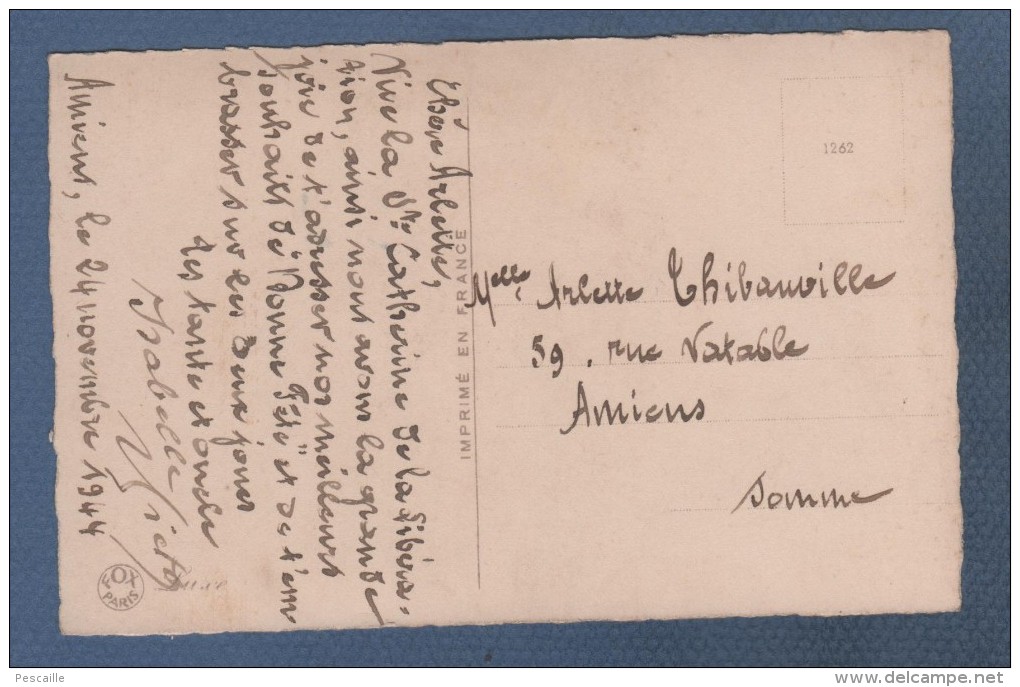 Chère Arlette,
Vive la Ste Catherine de la Libéra-
tion, ainsi nous avons la grande
joie de t'adresser nos meilleurs
souhaits de "Bonne Fête" et de t'em
brasser sur les deux joues
Les tante et oncle
Isabelle Victor
Amiens, le 24 novembre 1944
FOX
PARIS
IMPRIMÉ EN FRANCE
1262
Melle Arlette Thibauville
59, rue Vatable
Amiens
Somme
Pescaille